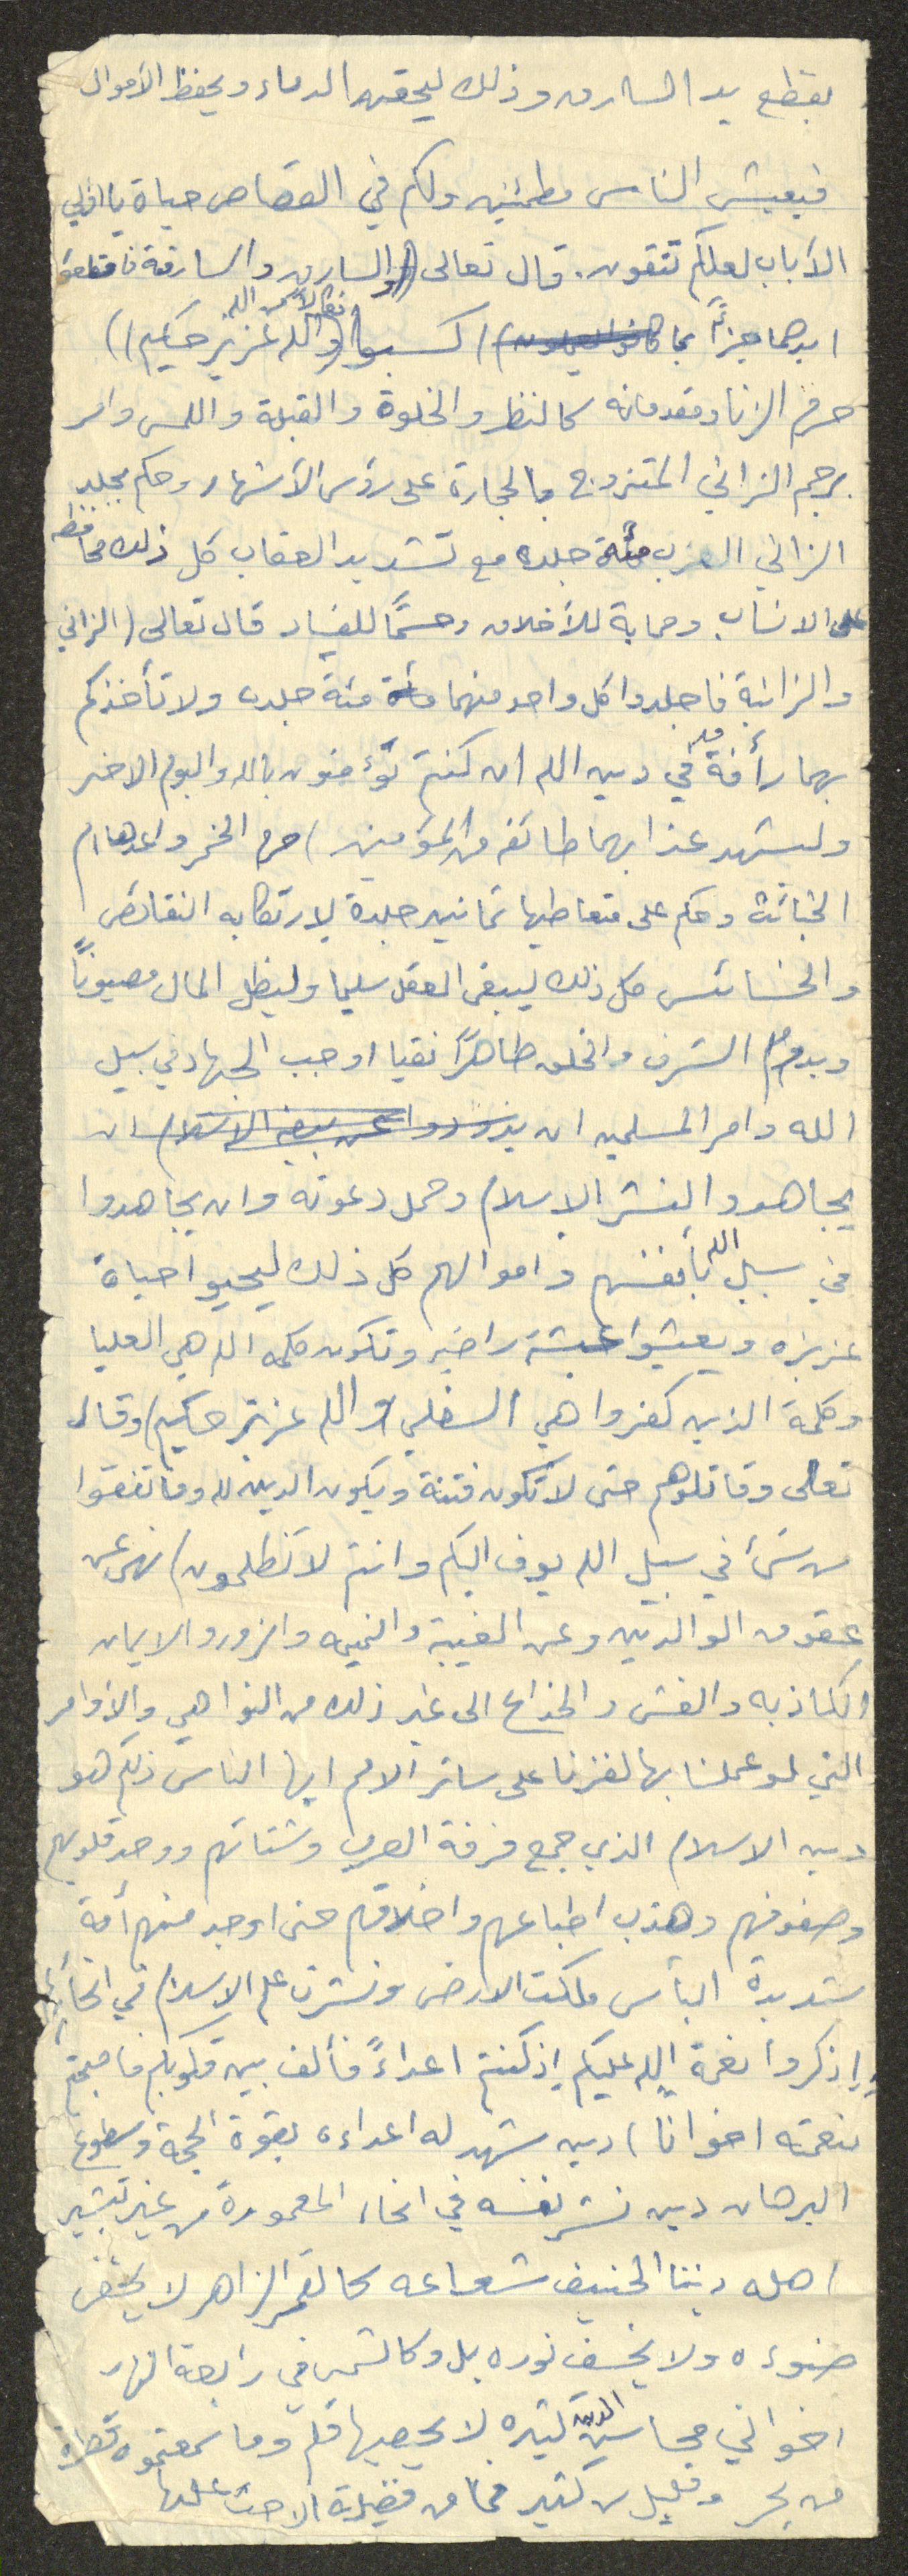 بقطع يد السارق وذلك ليحقن الدماء ويحفظ الأموال
فيعيش الناس مطمئنين ولكم في القصاص حياة يا اولي
الألباب لعلكم تتقون. قال تعالى (والسارق والسارقة فاقطعوا
ايديهما جزاءً بما كسبا نكالا من الله (والله عزيز حكيم))
حرم الزنا ومقدماته كالنظر والخلوة والقبلة واللمس وامر
برجم الزاني المتزوج بالحجارة على رؤس الأشهاد وحكم بجلد
الزاني العزب مئة جلده مع تشديد العقاب كل ذلك محافظه
على الانساب وحماية للأخلاق وحسمًا للفساد قال تعالى (الزاني
والزانية فاجلدوا كل واحد منهما مئة جلده ولا تأخذكم
بهما رأفة في دين الله ان كنتم تؤمنون بالله واليوم الاخر
وليشهد عذابهما طائفه من المؤمنين) حرم الخمر وعدها ام
الخبائث وحكم على متعاطيها ثمانين جلدة لارتكابه النقائص
والخسائس كل ذلك ليبقى العقل سليما وليظل المال مصوناً
ويدوم الشرف والخلق طاهرًا نقيا اوجب الجهاد في سبيل
الله وامر المسلمين ان يذودوا عن بيضة الاسلام ان
يجاهدوا لنشر الاسلام وحمل دعوته وان يجاهدوا
في سبيل الله بأنفسهم واموالهم كل ذلك ليحيوا حياة
عزيزه ويعيشوا عيشة راضيه وتكون كلمة الله هي العليا
وكلمة الذين كفروا هي السفلى والله عزيز حكيم) وقال
تعالى وقاتلوهم حتى لا تكون فتنة ويكون الدين لله وما تنفقوا
من شئ في سبيل الله يوف اليكم وانتم لا تظلمون) نهى عن
عقوق الوالدين وعن الغيبة والنميمه والزور والايمان
الكاذبه والغش والخداع الى غير ذلك من النواهي والأوامر
التي لو عملنا بها لفزنا على سائر الامم ايها الناس ذلكم هو
دين الاسلام الذي جمع فرقة العرب وشتاتهم ووحد قلوبهم
وصفوفهم وهذب اطباعهم واخلاقهم حتى اوجد منهم أمة
شديدة البأس ملكت الارض ونشرت علم الاسلام في انحائها
(إذكروا نعمة الله عليكم إذ كنتم اعداءً فألف بين قلوبكم فاصبحتم
بنعمته اخوانا) دين شهد له اعداءه بقوة الحجة وسطوع
البرهان دين نشر نفسه في انحاء المعمورة من غير تبشير
اهله ديننا الحنيف شعاعه كالقمر الزاهر لا يخفى
ضوءه ولا يخسف نوره بل وكالشمس في رابعة النهار
اخواني محاسن الدين كثيره لا يحصيها قلم وما سمعتموه قطرة
من بحر وقليل من كثير فما من فضيلة الا حث عليها